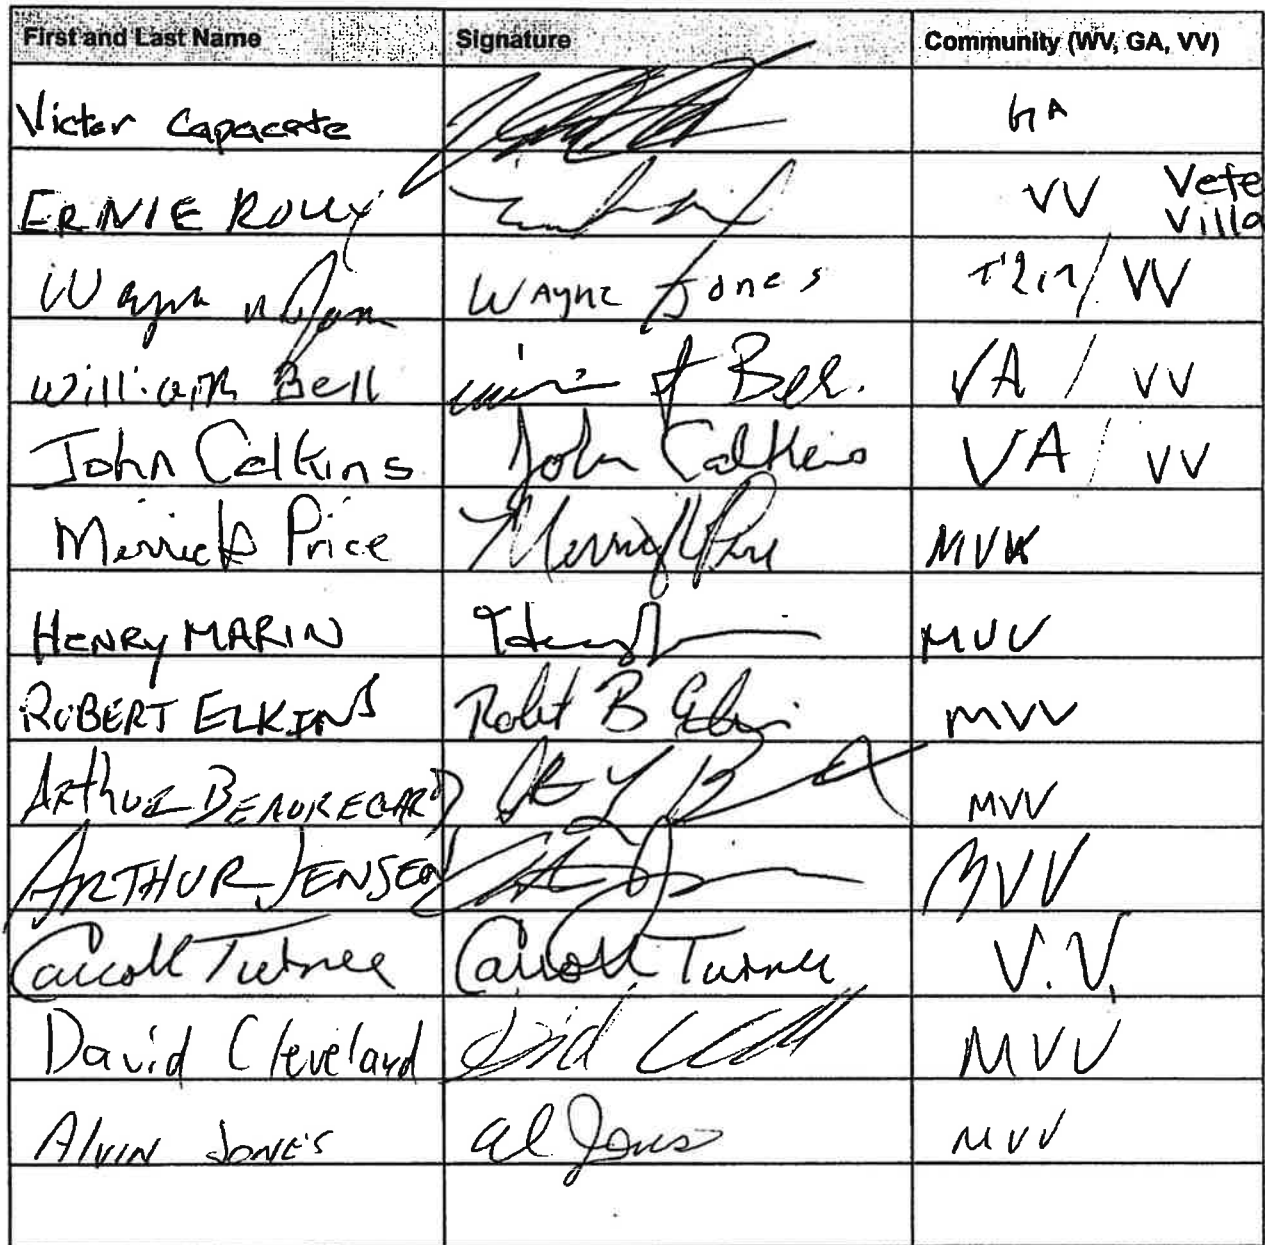 First and Last Name Signature Community (WV, GA, VV)
Victor Capacete GA
ERNIE ROUX VV Vete
Villa
Wayne Jones VV
William Bell VA / VV
John Calkins John Calkins VA / VV
Merrick Price Merrick Price MVV
HENRY MARIN MVV
ROBERT ELKINS Robt B Elkins MVV
Arthur BEAUREGARD MVV
ARTHUR JENSEN MVV
Carroll Turner Carroll Turner V.V.
David Cleveland MVV
Alvin Jones Al Jones MVV